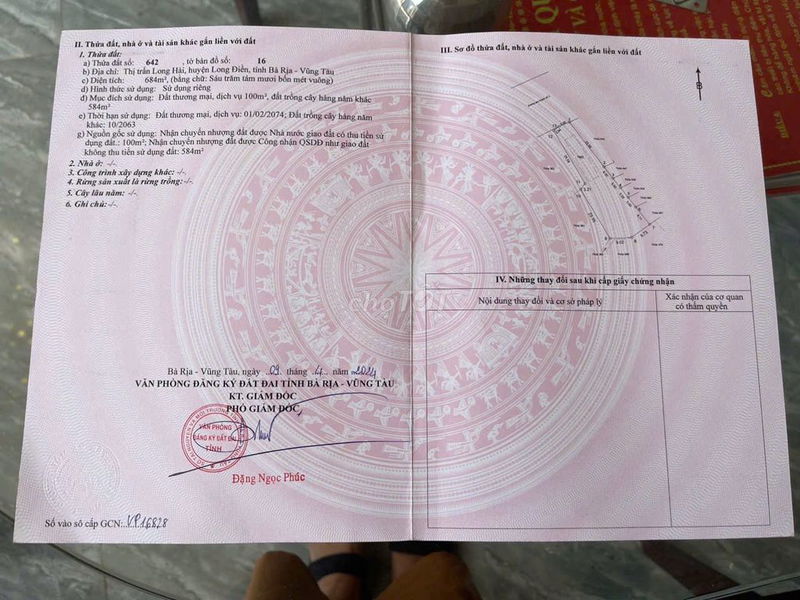 II. Thửa đất, nhà ở và tài sản khác gắn liền với đất
1. Thửa đất:
a) Thửa đất số: 642 , tờ bản đồ số: 16
b) Địa chỉ: Thị trấn Long Hải, huyện Long Điền, tỉnh Bà Rịa - Vũng Tàu
c) Diện tích: 684m², (bằng chữ: Sáu trăm tám mươi bốn mét vuông)
d) Hình thức sử dụng: Sử dụng riêng
đ) Mục đích sử dụng: Đất thương mại, dịch vụ 100m², đất trồng cây hàng năm khác
584m²
e) Thời hạn sử dụng: Đất thương mại, dịch vụ: 01/02/2074; Đất trồng cây hàng năm
khác: 10/2063
g) Nguồn gốc sử dụng: Nhận chuyển nhượng đất được Nhà nước giao đất có thu tiền sử
dụng đất.: 100m²; Nhận chuyển nhượng đất được Công nhận QSDĐ như giao đất
không thu tiền sử dụng đất: 584m²
2. Nhà ở: -/-
3. Công trình xây dựng khác: -/-
4. Rừng sản xuất là rừng trồng: -/-
5. Cây lâu năm: -/-
6. Ghi chú: -/-
Bà Rịa - Vũng Tàu, ngày 09 tháng 4 năm 2024
VĂN PHÒNG ĐĂNG KÝ ĐẤT ĐAI TỈNH BÀ RỊA - VŨNG TÀU
KT. GIÁM ĐỐC
PHÓ GIÁM ĐỐC
VĂN PHÒNG
ĐĂNG KÝ ĐẤT ĐAI
TỈNH
Đặng Ngọc Phúc
Số vào sổ cấp GCN: VP16828
III. Sơ đồ thửa đất, nhà ở và tài sản khác gắn liền với đất
B
9.02
IV. Những thay đổi sau khi cấp giấy chứng nhận
Nội dung thay đổi và cơ sở pháp lý
Xác nhận của cơ quan
có thẩm quyền
chợTỐT